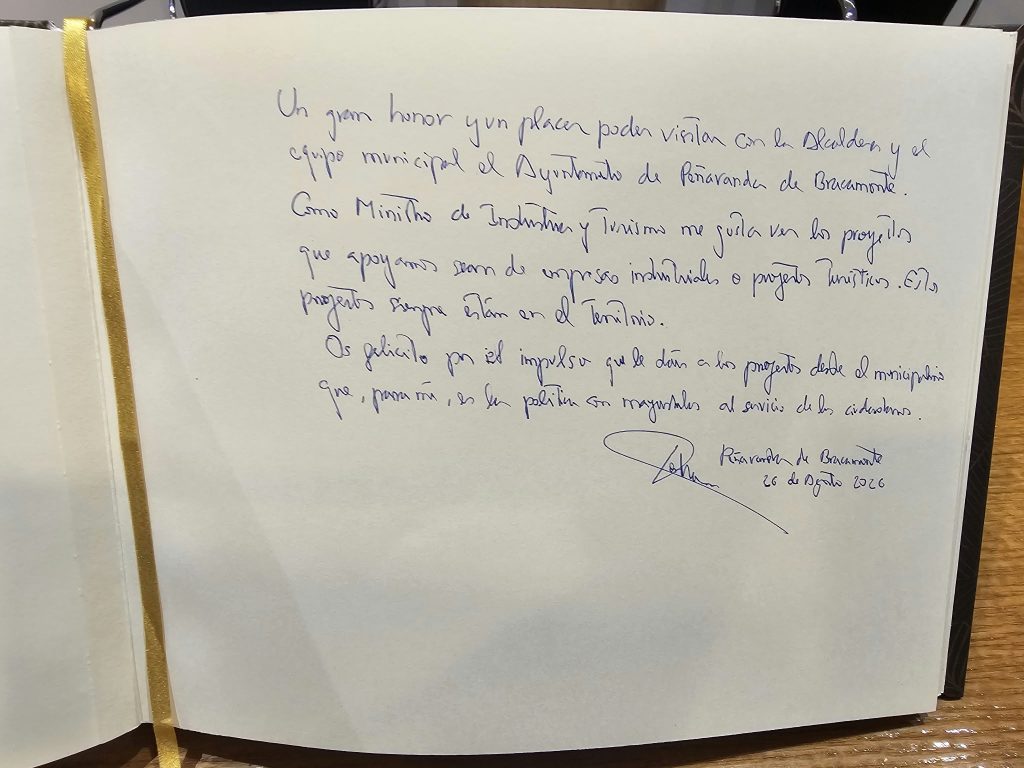 Un gran honor y un placer poder visitar con la Alcaldesa y el
equipo municipal el Ayuntamiento de Peñaranda de Bracamonte.
Como Ministro de Industria y Turismo me gusta ver los proyectos
que apoyamos sean de empresas industriales o proyectos turísticos. Estos
proyectos siempre están en el territorio.
Os felicito por el impulso que le dáis a los proyectos desde el municipalismo
que, para mí, es la política con mayúsculas al servicio de los ciudadanos.
Peñaranda de Bracamonte
26 de Agosto 2026